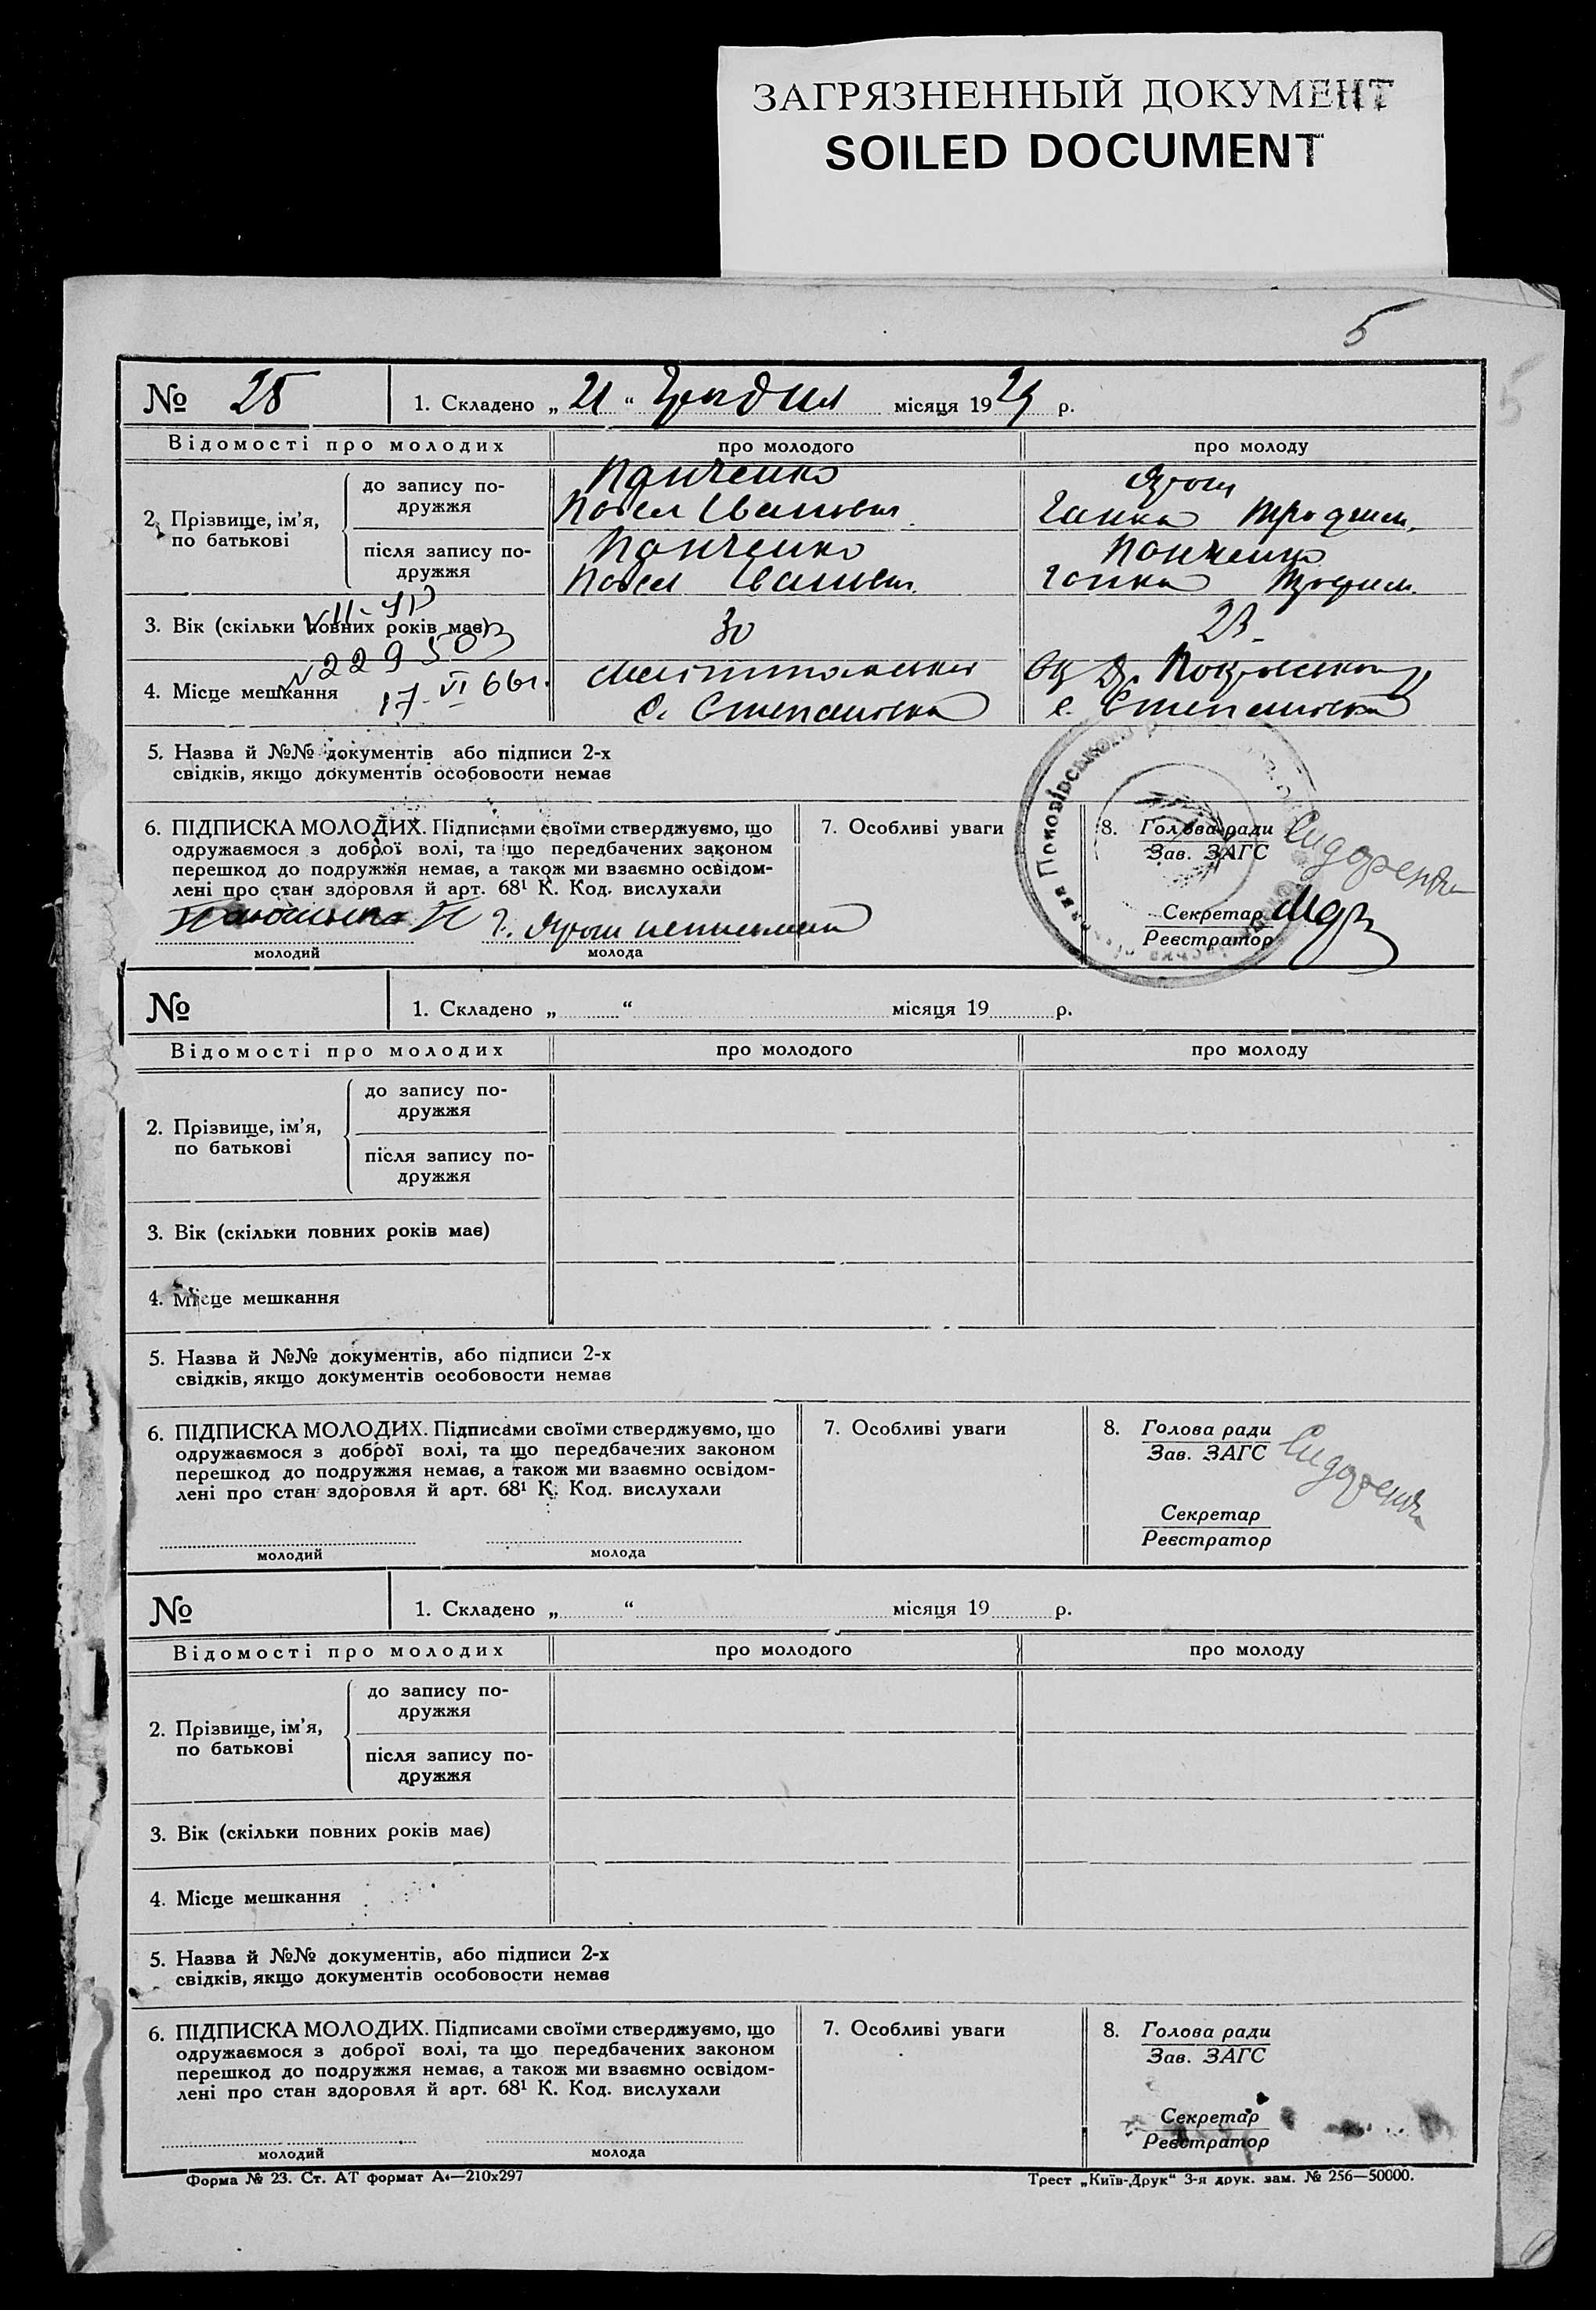 ЗАГРЯЗНЕННЫЙ ДОКУМЕНТ
SOILED DOCUMENT
5
№ 28
1. Складено „ 21 “ Грудня місяця 1929 р.
Відомості про молодих
про молодого
про молоду
2. Прізвище, ім’я,
по батькові
до запису по-
дружжя
Панченко
Павел Иванович
Ярош
Ганка Трофим.
після запису по-
дружжя
Панченко
Павел Иванович
Панченко
Ганка Трофим.
3. Вік (скільки повних років має)
30
23
VII-ЯР
№ 229503
17-VI 66г.
4. Місце мешкання
с. Степановка
Покровського
с. Степановка
5. Назва й №№ документів або підписи 2-х
свідків, якщо документів особовости немає
6. ПІДПИСКА МОЛОДИХ. Підписами своїми стверджуємо, що
одружаємося з доброї волі, та що передбачених законом
перешкод до подружжя немає, а також ми взаємно освідом-
лені про стан здоровля й арт. 68¹ К. Код. вислухали
Г. Ярош неписьмена
молодий
молода
7. Особливі уваги
8. Голова ради
Зав. ЗАГС
Сидоренко
Секретар
Реєстратор
№
1. Складено „ “ місяця 19 р.
Відомості про молодих
про молодого
про молоду
2. Прізвище, ім’я,
по батькові
до запису по-
дружжя
після запису по-
дружжя
3. Вік (скільки повних років має)
4. Місце мешкання
5. Назва й №№ документів, або підписи 2-х
свідків, якщо документів особовости немає
6. ПІДПИСКА МОЛОДИХ. Підписами своїми стверджуємо, що
одружаємося з доброї волі, та що передбачених законом
перешкод до подружжя немає, а також ми взаємно освідом-
лені про стан здоровля й арт. 68¹ К. Код. вислухали
молодий
молода
7. Особливі уваги
8. Голова ради
Зав. ЗАГС
Сидоренко
Секретар
Реєстратор
№
1. Складено „ “ місяця 19 р.
Відомості про молодих
про молодого
про молоду
2. Прізвище, ім’я,
по батькові
до запису по-
дружжя
після запису по-
дружжя
3. Вік (скільки повних років має)
4. Місце мешкання
5. Назва й №№ документів, або підписи 2-х
свідків, якщо документів особовости немає
6. ПІДПИСКА МОЛОДИХ. Підписами своїми стверджуємо, що
одружаємося з доброї волі, та що передбачених законом
перешкод до подружжя немає, а також ми взаємно освідом-
лені про стан здоровля й арт. 68¹ К. Код. вислухали
молодий
молода
7. Особливі уваги
8. Голова ради
Зав. ЗАГС
Секретар
Реєстратор
Форма № 23. Ст. АТ формат А₄—210х297
Трест „Київ-Друк“ 3-я друк. зам. № 256—50000.